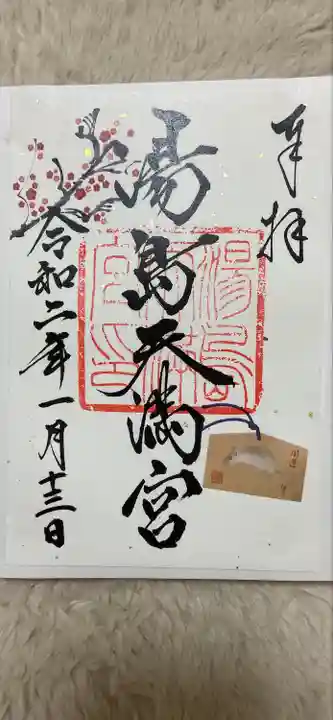 奉拝
湯島天満宮
令和二年一月十三日
開運